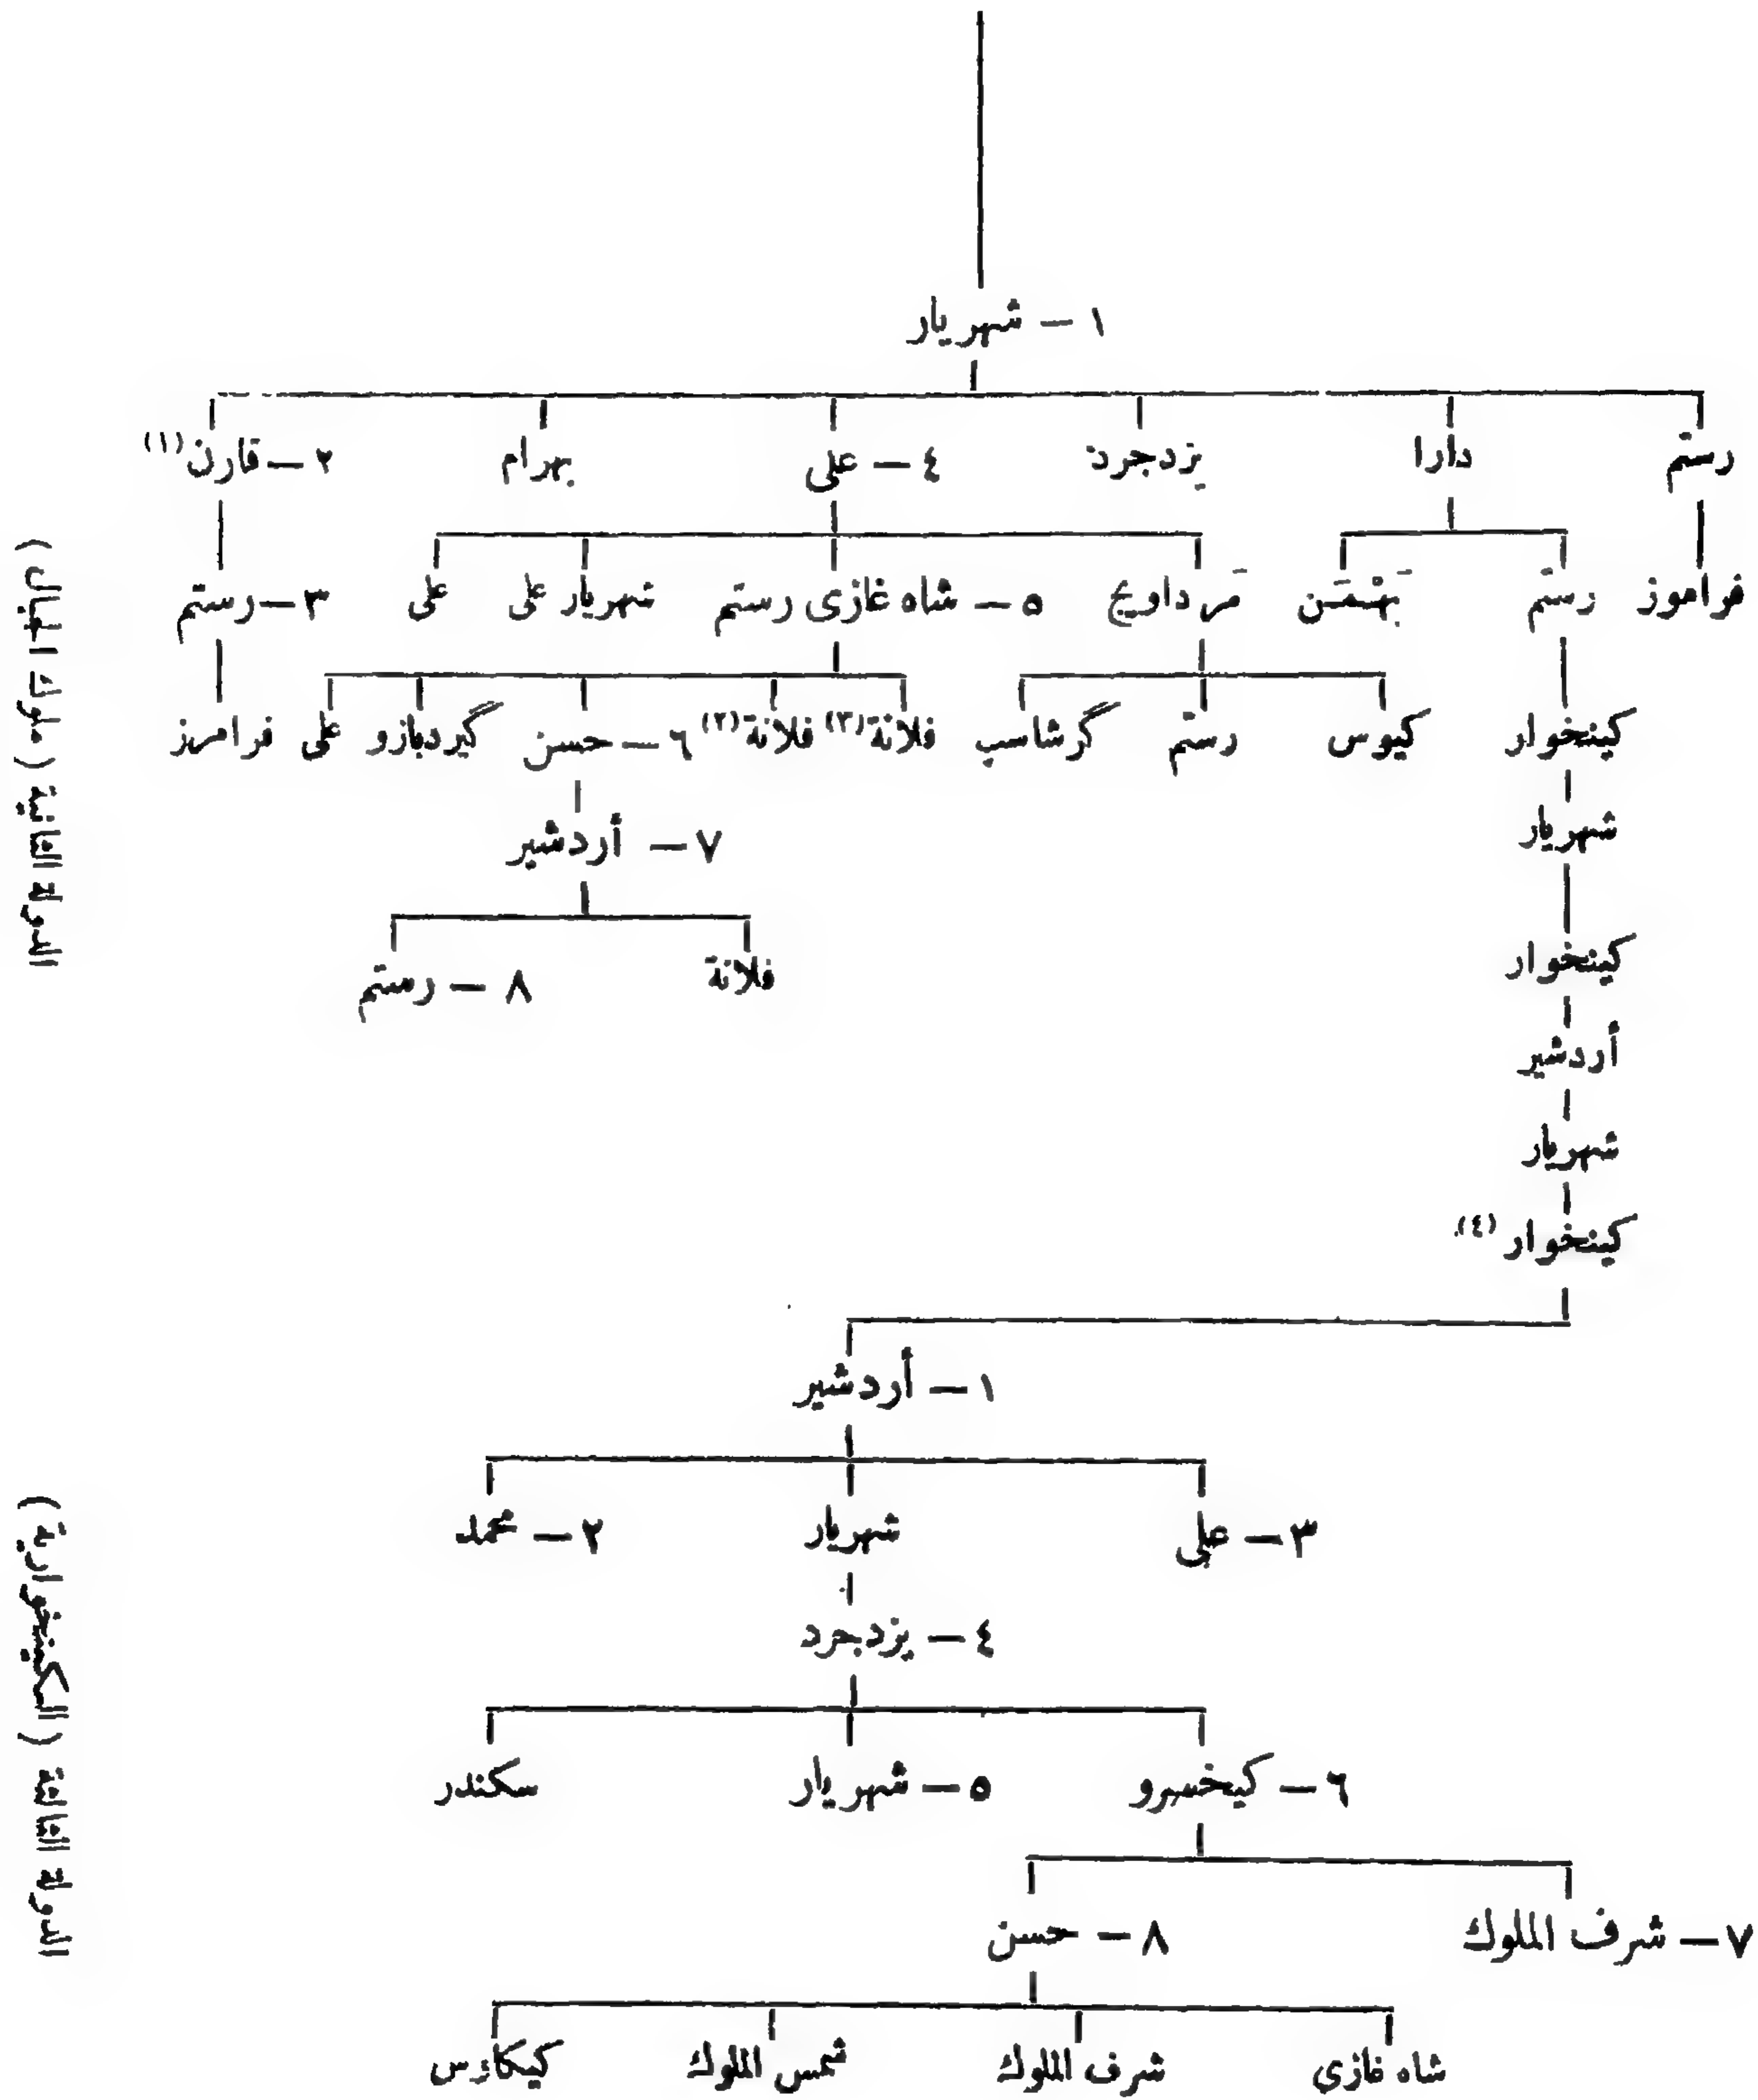 ١ – شهريار
رستم دارا يزدجرد ٤ – على بهرام ٢ – قارن (١)
فراموز رستم بَهْمَن مَرداويج ٥ – شاه غازى رستم شهريار على على ٣ – رستم
كينخوار كيوس رستم گرشاسب فلانة (٣) فلانة (٢) ٦ – حسن گيردبازو على فرامرز
شهريار ٧ – أردشير
كينخوار فلانة ٨ – رستم
أردشير
شهريار
كينخوار (٤)
١ – أردشير
٣ – على شهريار ٢ – محمد
٤ – يزدجرد
٦ – كيخسرو ٥ – شهريار سكندر
٧ – شرف الملوك ٨ – حسن
شاه غازى شرف الملوك شمس الملوك كيكاوس
الدولة الثانية (ملوك الجبال)
الدولة الثالثة (الكينخوارية)